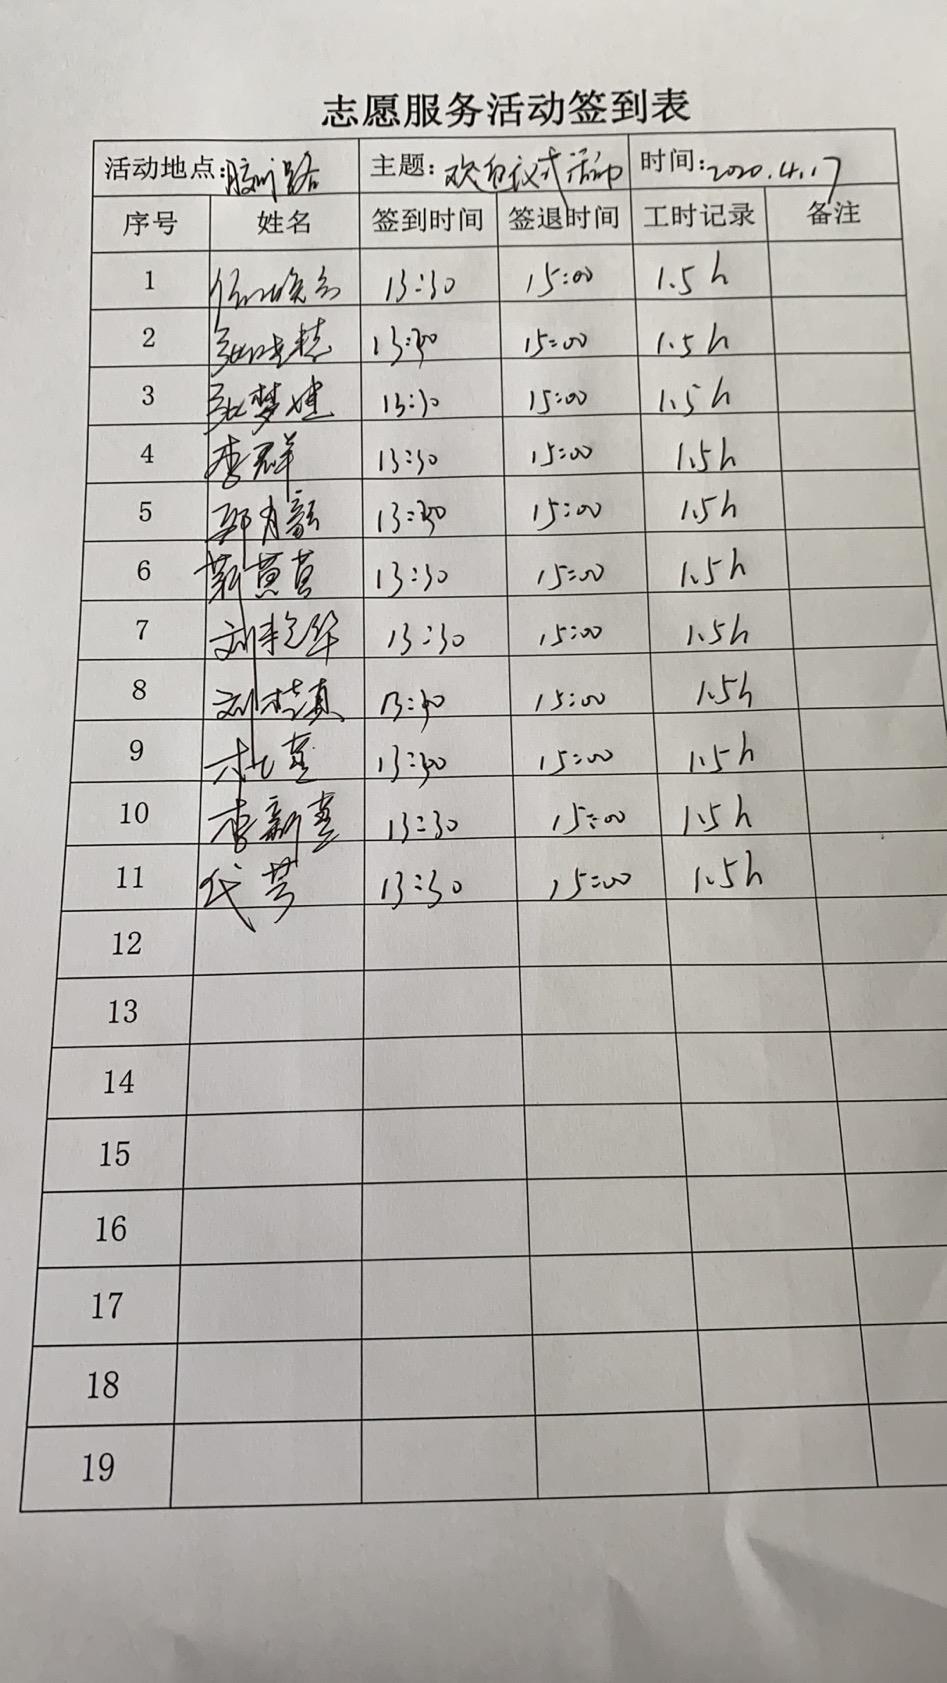 志愿服务活动签到表
活动地点:胶州路 主题:欢迎仪式活动 时间:2020.4.17
序号 姓名 签到时间 签退时间 工时记录 备注
1 13:30 15:00 1.5h
2 13:30 15:00 1.5h
3 张梦婕 13:30 15:00 1.5h
4 李群 13:30 15:00 1.5h
5 郭月韵 13:30 15:00 1.5h
6 13:30 15:00 1.5h
7 刘艳华 13:30 15:00 1.5h
8 刘桂真 13:30 15:00 1.5h
9 13:30 15:00 1.5h
10 李新 13:30 15:00 1.5h
11 代芳 13:30 15:00 1.5h
12
13
14
15
16
17
18
19